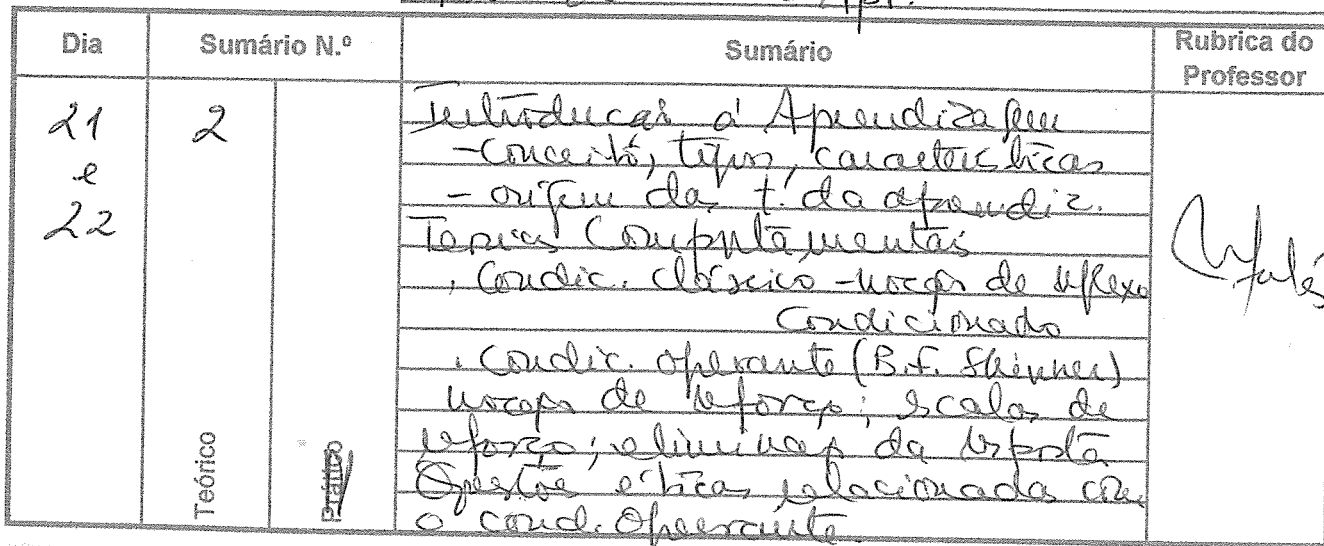 Apr.
Dia Sumário N.º Sumário Rubrica do Professor
21 e 22
2
Teórico
Prático
Introducção á Aprendizagem
- Conceito, tipos, caracteristicas
- origem da t. da aprendiz.
Teorias Comportamentais
. Condic. Clássico - noção de reflexo
Condicionado
. Condic. Operante (B.F. Skinner)
noção de reforço; escalas de
reforço; eliminação da resposta
Questões éticas relacionadas com
o cond. Operante.